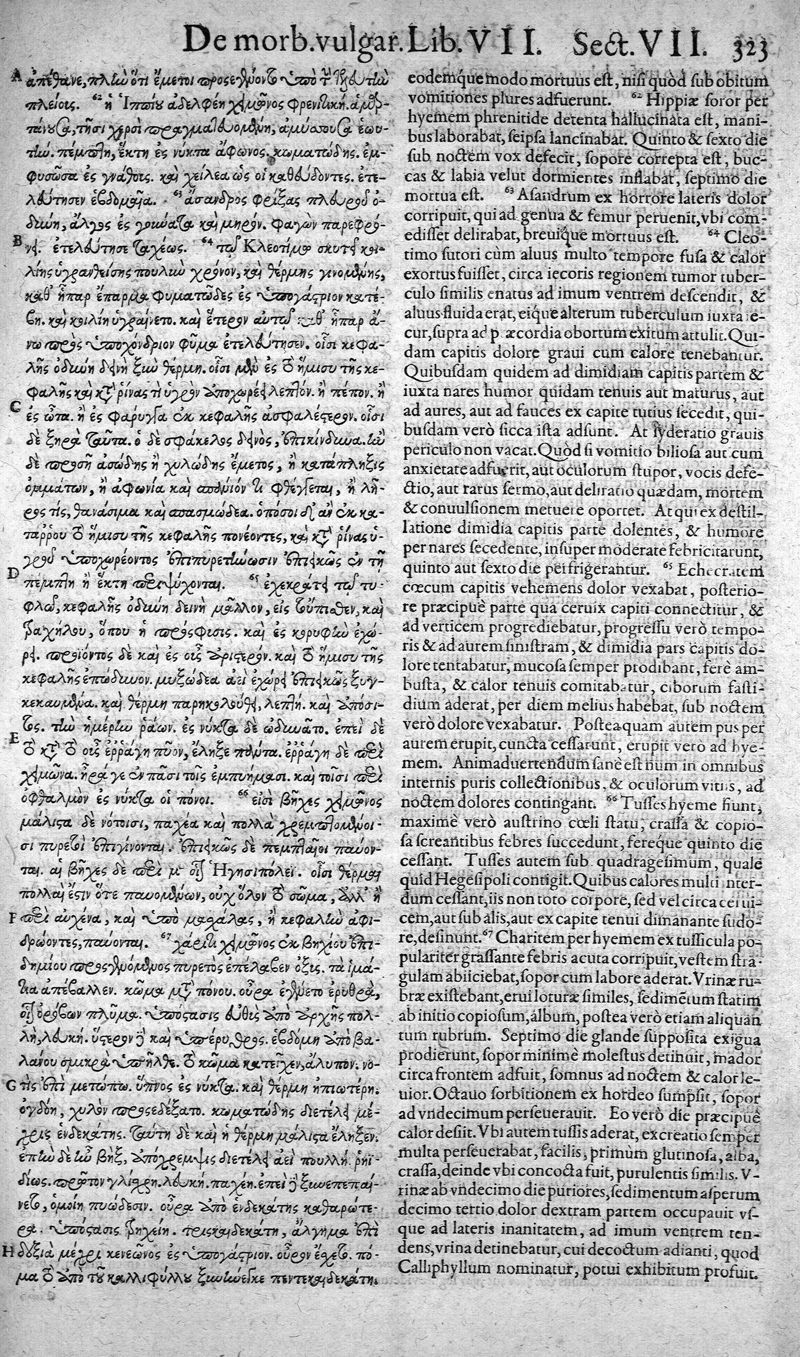 De morb.vulgar.Lib.VII. Sect.VII. 323
A ἀπέθανε, πλὴν ὅτι ἔμετοι προσεγένοντο ὑπὸ τ̀ τελευτὴν
πλείους. 62 ἡ Ἱππίου ἀδελφεὴ χειμῶνος φρενιτική.
τῇσι χερσὶ πραγματευομένη, ἀμύσσουσα ἑωυ-
τήν. πέμπτῃ, ἕκτῃ ἐς νύκτα ἄφωνος, κωματώδης. ἐμ-
φυσῶσα ἐς γνάθους. καὶ χείλεα ὡς οἱ καθεύδοντες. ἐτε-
λεύτησεν ἑβδομαία. 63 ἄσανδρος φρίξας πλευροῦ ὀ-
δύνη, ἄλγος ἐς γούνατα καὶ μηρόν. φαγὼν παρεφρό-
B νει. ἐτελεύτησε ταχέως. 64 τῷ Κλεοτίμῳ σκυτεῖ κοι-
λίης ὑγρανθείσης πουλὺν χρόνον, καὶ θέρμης γινομένης,
καθ' ἧπαρ ἔπαρμα φυματῶδες ἐς ὑπογάστριον κατέ-
βη. καὶ κοιλίη ὑγραίνετο. καὶ ἕτερον αὐτῷ καθ' ἧπαρ ἄ-
νω πρὸς ὑποχόνδριον φῦμα ἐτελεύτησεν. οἷσι κεφα-
λῆς ὀδύνη δεινὴ ξὺν θέρμῃ. οἷσι μὲν ἐς τὸ ἥμισυ τῆς κε-
φαλῆς καὶ κατὰ ῥῖνας τὶ ὑγρὸν ὑποχωρέει λεπτὸν. ἢ πέπον. ἢ
C ἐς ὦτα. ἢ ἐς φάρυγγα ἐκ κεφαλῆς ἀσφαλέστερον. οἷσι
δὲ ξηρὰ ταῦτα. ὁ δὲ σφάκελος δεινὸς, ἐπικίνδυνα. ἢν
δὲ προσῇ ἀσώδης ἢ χολώδης ἔμετος, ἢ κατάπληξις
ὀμμάτων, ἢ ἀφωνία καὶ σπάνιόν τι φθέγγεται, ἢ λῆ-
ρός τις, θανάσιμα καὶ σπασμώδεα. ὁπόσοι δ' ἂν ἐκ κα-
τάρρου τὸ ἥμισυ τῆς κεφαλῆς πονέοντες, καὶ κατὰ ῥῖνας ὑ-
γροῦ ὑποχωρέοντος ἐπιπυρετήνωσιν ἐπιεικῶς ἐν τῇ
D πέμπτῃ ἢ ἕκτῃ περιψύχονται. 65 ἐχεκράτει τῷ τυ-
φλῷ, κεφαλῆς ὀδύνη δεινὴ μᾶλλον, εἰς τοὔπισθεν, καὶ
τραχήλου, ὅπου ἡ πρόσφυσις. καὶ ἐς κορυφὴν ἐχώ-
ρει. προϊόντος δὲ καὶ ἐς οὖς ἀριστερόν. καὶ τὸ ἥμισυ τῆς
κεφαλῆς ἐπώδυνον. μυξώδεα ἀεὶ ἐχώρει ἐπιεικῶς ξυγ-
κεκαυμένα. καὶ θέρμη παρηκολούθει, λεπτή. καὶ ἀπόσι-
τος. τὴν ἡμέρην ῥάων. ἐς νύκτα δὲ ὠδυνᾶτο. ἐπεὶ δὲ
E τὸ κατὰ τὸ οὖς ἐρράγη πῦον, ἔληξε πάντα. ἐρράγη δὲ περὶ
χειμῶνα. ἦρά γε ἐν πᾶσι τοῖς ἐμπυήμασι. καὶ τοῖσι περὶ
ὀφθαλμὸν ἐς νύκτα οἱ πόνοι. 66 εἰσὶ βῆχες χειμῶνος
μάλιστα δὲ νότοισι, παχέα καὶ πολλὰ χρεμπτομένοι-
σι πυρετοὶ ἐπιγίνονται. ἐπιεικῶς δὲ πεμπταῖοι παύον-
ται. αἱ βῆχες δὲ περὶ μ' οἷον Ἡγησιπόλει. οἷσι θέρμαι
πολλαὶ ἔστιν ὅτε παυομένων, οὐχ ὅλον τὸ σῶμα, ἀλλ' ἢ
F περὶ αὐχένα, καὶ ὑπὸ μασχάλας, ἢ κεφαλὴν ἀφι-
δρώοντες, παύονται. 67 χάριτι χειμῶνος ἐκ βηχίου ἐπι-
δημίου προσγενομένου πυρετὸς ἐπέλαβεν ὀξύς. τὰ ἱμά-
τια ἀπέβαλλεν. κῶμα μετὰ πόνου. οὖρα ἐγένετο ἐρυθρὰ,
οἷον ὀρόβων πλύμα. ὑπόστασις εὐθὺς ἀπὸ ἀρχῆς πολ-
λὴ, λευκή. ὕστερον δὲ καὶ ὑπέρυθρος. ἑβδόμῃ ἀπὸ βα-
λάνου σμικρὰ ὑπῆλθε. τὸ κῶμα κατεῖχεν, ἄλυπον. νο-
G τὶς ἐπὶ μετώπῳ. ὕπνος ἐς νύκτα. καὶ θέρμη ἠπιωτέρη.
ὀγδόῃ, χυλὸν προσεδέξατο. κωματώδης διετέλει μέ-
χρις ἑνδεκάτης. ταύτῃ δὲ καὶ ἡ θέρμη μάλιστα ἔληξεν.
ἐπὴν δὲ ἦν βὴξ, ἀπόχρεμψις διετέλει ἀεὶ πουλλὴ, ῥηϊ-
δίως. πρῶτον γλίσχρη. λευκή. παχέη. ἐπεὶ δὲ ξυνεπεπαί-
νετο, ὁμοίη πυώδεσιν. οὖρα ἀπὸ ἑνδεκάτης καθαρώτε-
ρα. ὑπόστασις τρηχείη. τρισκαιδεκάτῃ, ἄλγημα ἐπὶ
H δεξιὰ μέχρι κενεῶνος ἐς ὑπογάστριον. οὖρον ἔσχετο. πό-
μα τὸ ἀπὸ τοῦ καλλιφύλλου ξυνήνεγκε πεντεκαιδεκάτῃ.
eodemque modo mortuus est, nisi quòd sub obitum
vomitiones plures adfuerunt. 62 Hippiæ soror per
hyemem phrenitide detenta hallucinata est, mani-
bus laborabat, seipsa lancinabat. Quinto & sexto die
sub noctem vox defecit, sopore correpta est, buc-
cas & labia velut dormientes inflabat, septimo die
mortua est. 63 Asandrum ex horrore lateris dolor
corripuit, qui ad genua & femur peruenit, vbi com-
edisset delirabat, breuique mortuus est. 64 Cleo-
timo sutori cum aluus multo tempore fusa & calor
exortus fuisset, circa iecoris regionem tumor tuber-
culo similis enatus ad imum ventrem descendit, &
aluus fluida erat, eique alterum tuberculum iuxta ie-
cur, supra ad præcordia obortum exitum attulit. Qui-
dam capitis dolore graui cum calore tenebantur.
Quibusdam quidem ad dimidiam capitis partem &
iuxta nares humor quidam tenuis aut maturus, aut
ad aures, aut ad fauces ex capite tutius secedit, qui-
busdam verò sicca ista adsunt. At syderatio grauis
periculo non vacat. Quòd si vomitio biliosa aut cum
anxietate adfuerit, aut oculorum stupor, vocis defe-
ctio, aut rarus sermo, aut deliratio quædam, mortem
& conuulsionem metuere oportet. At qui ex destil-
latione dimidia capitis parte dolentes, & humore
per nares secedente, insuper moderate febricitarunt,
quinto aut sexto die perfrigerantur. 65 Echecratem
cœcum capitis vehemens dolor vexabat, posterio-
re præcipuè parte qua ceruix capiti connectitur, &
ad verticem progrediebatur, progressu verò tempo-
ris & ad aurem sinistram, & dimidia pars capitis do-
lore tentabatur, mucosa semper prodibant, ferè am-
busta, & calor tenuis comitabatur, ciborum fasti-
dium aderat, per diem melius habebat, sub noctem
verò dolore vexabatur. Posteaquam autem pus per
aurem erupit, cuncta cessarunt, erupit vero ad hye-
mem. Animaduertendum sanè est num in omnibus
internis puris collectionibus, & oculorum vitiis, ad
noctem dolores contingant. 66 Tusses hyeme fiunt,
maximè verò austrino cœli statu, crassa & copio-
sa screantibus febres succedunt, fereque quinto die
cessant. Tusses autem sub quadragesimum, quale
quid Hegesipoli contigit. Quibus calores multi inter-
dum cessant, iis non toto corpore, sed vel circa cerui-
cem, aut sub alis, aut ex capite tenui dimanante sudo-
re, desinunt. 67 Charitem per hyemem ex tussicula po-
pulariter grassante febris acuta corripuit, vestem stra-
gulam abiiciebat, sopor cum labore aderat. Vrinæ ru-
bræ existebant, erui loturæ similes, sedimētum statim
ab initio copiosum, album, postea verò etiam aliquan
tum rubrum. Septimo die glande supposita exigua
prodierunt, sopor minimè molestus detinuit, mador
circa frontem adfuit, somnus ad noctem & calor le-
uior. Octauo sorbitionem ex hordeo sumpsit, sopor
ad vndecimum perseuerauit. Eo verò die præcipuè
calor desiit. Vbi autem tussis aderat, excreatio semper
multa perseuerabat, facilis, primum glutinosa, alba,
crassa, deinde vbi concocta fuit, purulentis similis. V-
rinæ ab vndecimo die puriores, sedimentum asperum
decimo tertio dolor dextram partem occupauit vs-
que ad lateris inanitatem, ad imum ventrem ten-
dens, vrina detinebatur, cui decoctum adianti, quod
Calliphyllum nominatur, potui exhibitum profuit.